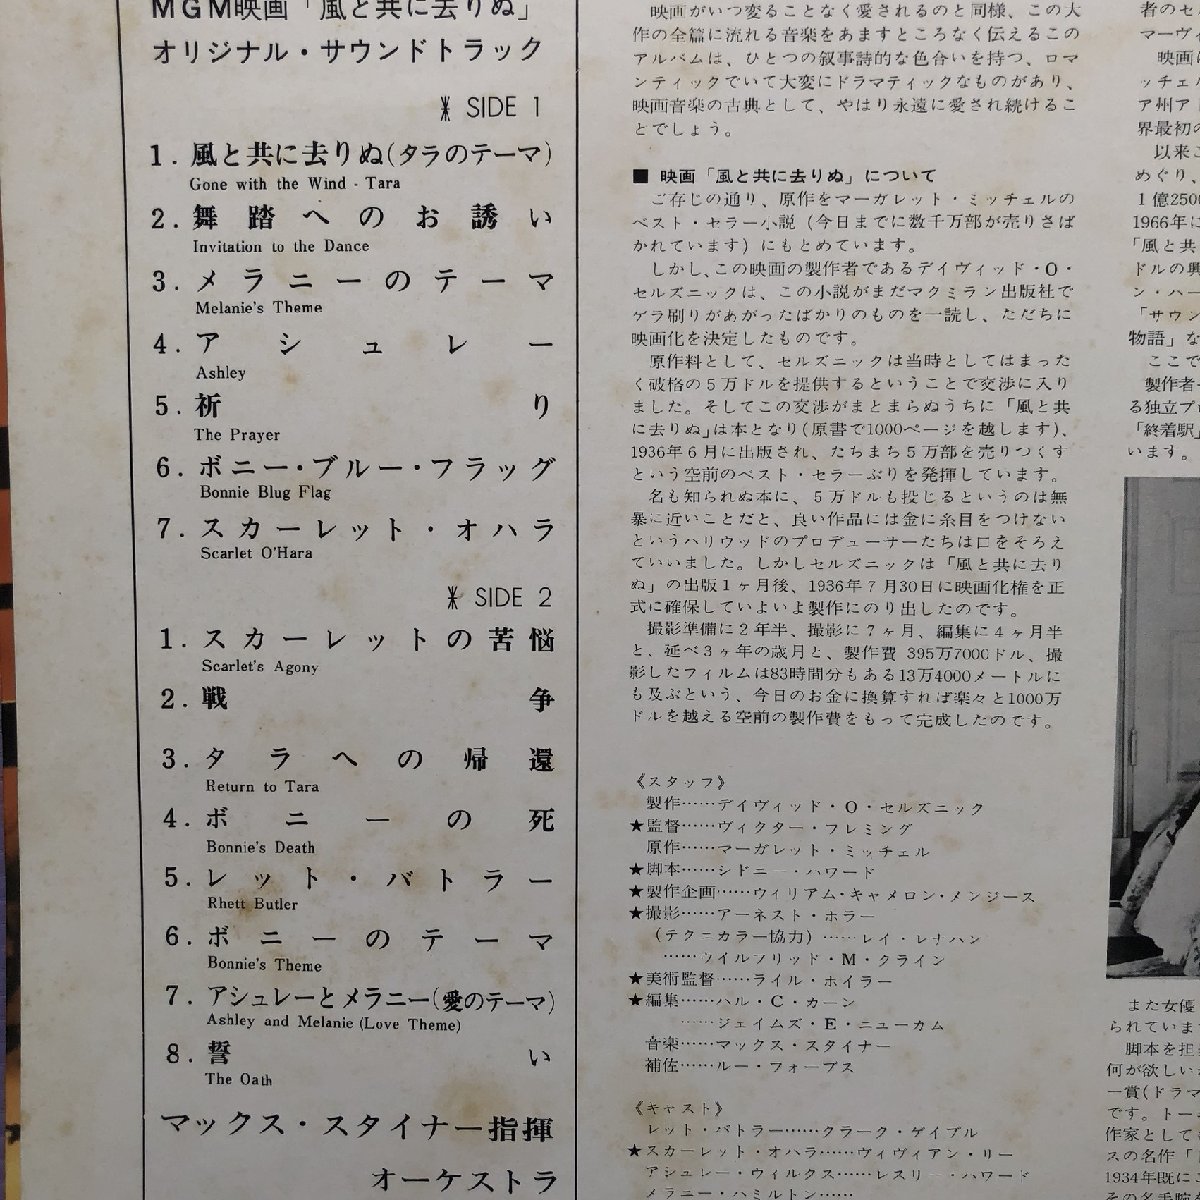 MGM映画「風と共に去りぬ」
オリジナル・サウンドトラック
SIDE 1
1. 風と共に去りぬ(タラのテーマ)
Gone with the Wind・Tara
2. 舞踏へのお誘い
Invitation to the Dance
3. メラニーのテーマ
Melanie's Theme
4. アシュレー
Ashley
5. 祈り
The Prayer
6. ボニー・ブルー・フラッグ
Bonnie Blug Flag
7. スカーレット・オハラ
Scarlet O'Hara
SIDE 2
1. スカーレットの苦悩
Scarlet's Agony
2. 戦争
3. タラへの帰還
Return to Tara
4. ボニーの死
Bonnie's Death
5. レット・バトラー
Rhett Butler
6. ボニーのテーマ
Bonnie's Theme
7. アシュレーとメラニー(愛のテーマ)
Ashley and Melanie (Love Theme)
8. 誓い
The Oath
マックス・スタイナー指揮
オーケストラ
映画がいつ変ることなく愛されるのと同様、この大
作の全篇に流れる音楽をあますところなく伝えるこの
アルバムは、ひとつの叙事詩的な色合いを持つ、ロマ
ンティックでいて大変にドラマティックなものがあり、
映画音楽の古典として、やはり永遠に愛され続けるこ
とでしょう。
■ 映画「風と共に去りぬ」について
ご存じの通り、原作をマーガレット・ミッチェルの
ベスト・セラー小説(今日までに数千万部が売りさば
かれています)にもとめています。
しかし、この映画の製作者であるデイヴィッド・O・
セルズニックは、この小説がまだマクミラン出版社で
ゲラ刷りがあがったばかりのものを一読し、ただちに
映画化を決定したものです。
原作料として、セルズニックは当時としてはまった
く破格の5万ドルを提供するということで交渉に入り
ました。そしてこの交渉がまとまらぬうちに「風と共
に去りぬ」は本となり(原書で1000ページを越します)、
1936年6月に出版され、たちまち5万部を売りつくす
という空前のベスト・セラーぶりを発揮しています。
名も知られぬ本に、5万ドルも投じるというのは無
暴に近いことだと、良い作品には金に糸目をつけない
というハリウッドのプロデューサーたちは口をそろえ
ていいました。しかしセルズニックは「風と共に去り
ぬ」の出版1ヶ月後、1936年7月30日に映画化権を正
式に確保していよいよ製作にのり出したのです。
撮影準備に2年半、撮影に7ヶ月、編集に4ヶ月半
と、延べ3ヶ年の歳月と、製作費 395万7000ドル、撮
影したフィルムは83時間分もある13万4000メートルに
も及ぶという、今日のお金に換算すれば楽々と1000万
ドルを越える空前の製作費をもって完成したのです。
《スタッフ》
製作……デイヴィッド・O・セルズニック
★監督……ヴィクター・フレミング
原作……マーガレット・ミッチェル
★脚本……シドニー・ハワード
★製作企画……ウィリアム・キャメロン・メンジース
★撮影……アーネスト・ホラー
(テクニカラー協力)……レイ・レナハン
……ウイルフリッド・M・クライン
★美術監督……ライル・ホイラー
★編集……ハル・C・カーン
……ジェイムズ・E・ニューカム
音楽……マックス・スタイナー
補佐……ルー・フォーブス
《キャスト》
レット・バトラー……クラーク・ゲイブル
★スカーレット・オハラ……ヴィヴィアン・リー
アシュレー・ウィルクス……レスリー・ハワード
メラニー・ハミルトン……
者のセ
マーヴィ
映画に
ッチェル
ア州ア
界最初の
以来こ
めぐり、
1億2500
1966年に
「風と共
ドルの興
ン・ハー
「サウン
物語」な
ここで
製作者
る独立プロ
「終着駅」
います。
また女優
られていま
脚本を担
何が欲しい
ー賞(ドラマ
です。トー
作家として
スの名作「
1934年既に
その名手